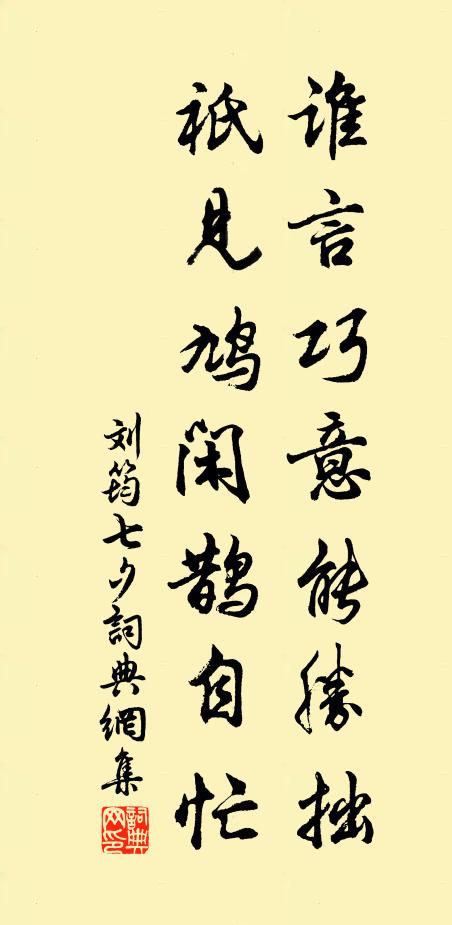 谁言巧意能勝拙
祇見鸠闲鹊自忙
刘筠七夕詞典網集
詞典网印